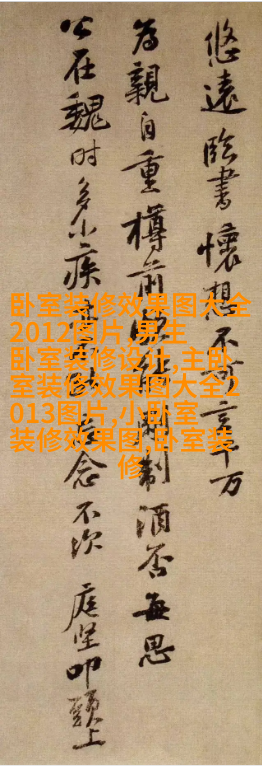 悠遠臨書懷想不可言千万
为親自重樽前能剛制酒否每思
公在魏时多小疾念不次庭坚叩頭上
卧室装修效果图大全
2012图片,男生
卧室装修设计,主卧
室装修效果图大全2
013图片,小卧室
装修效果图,卧室装
修